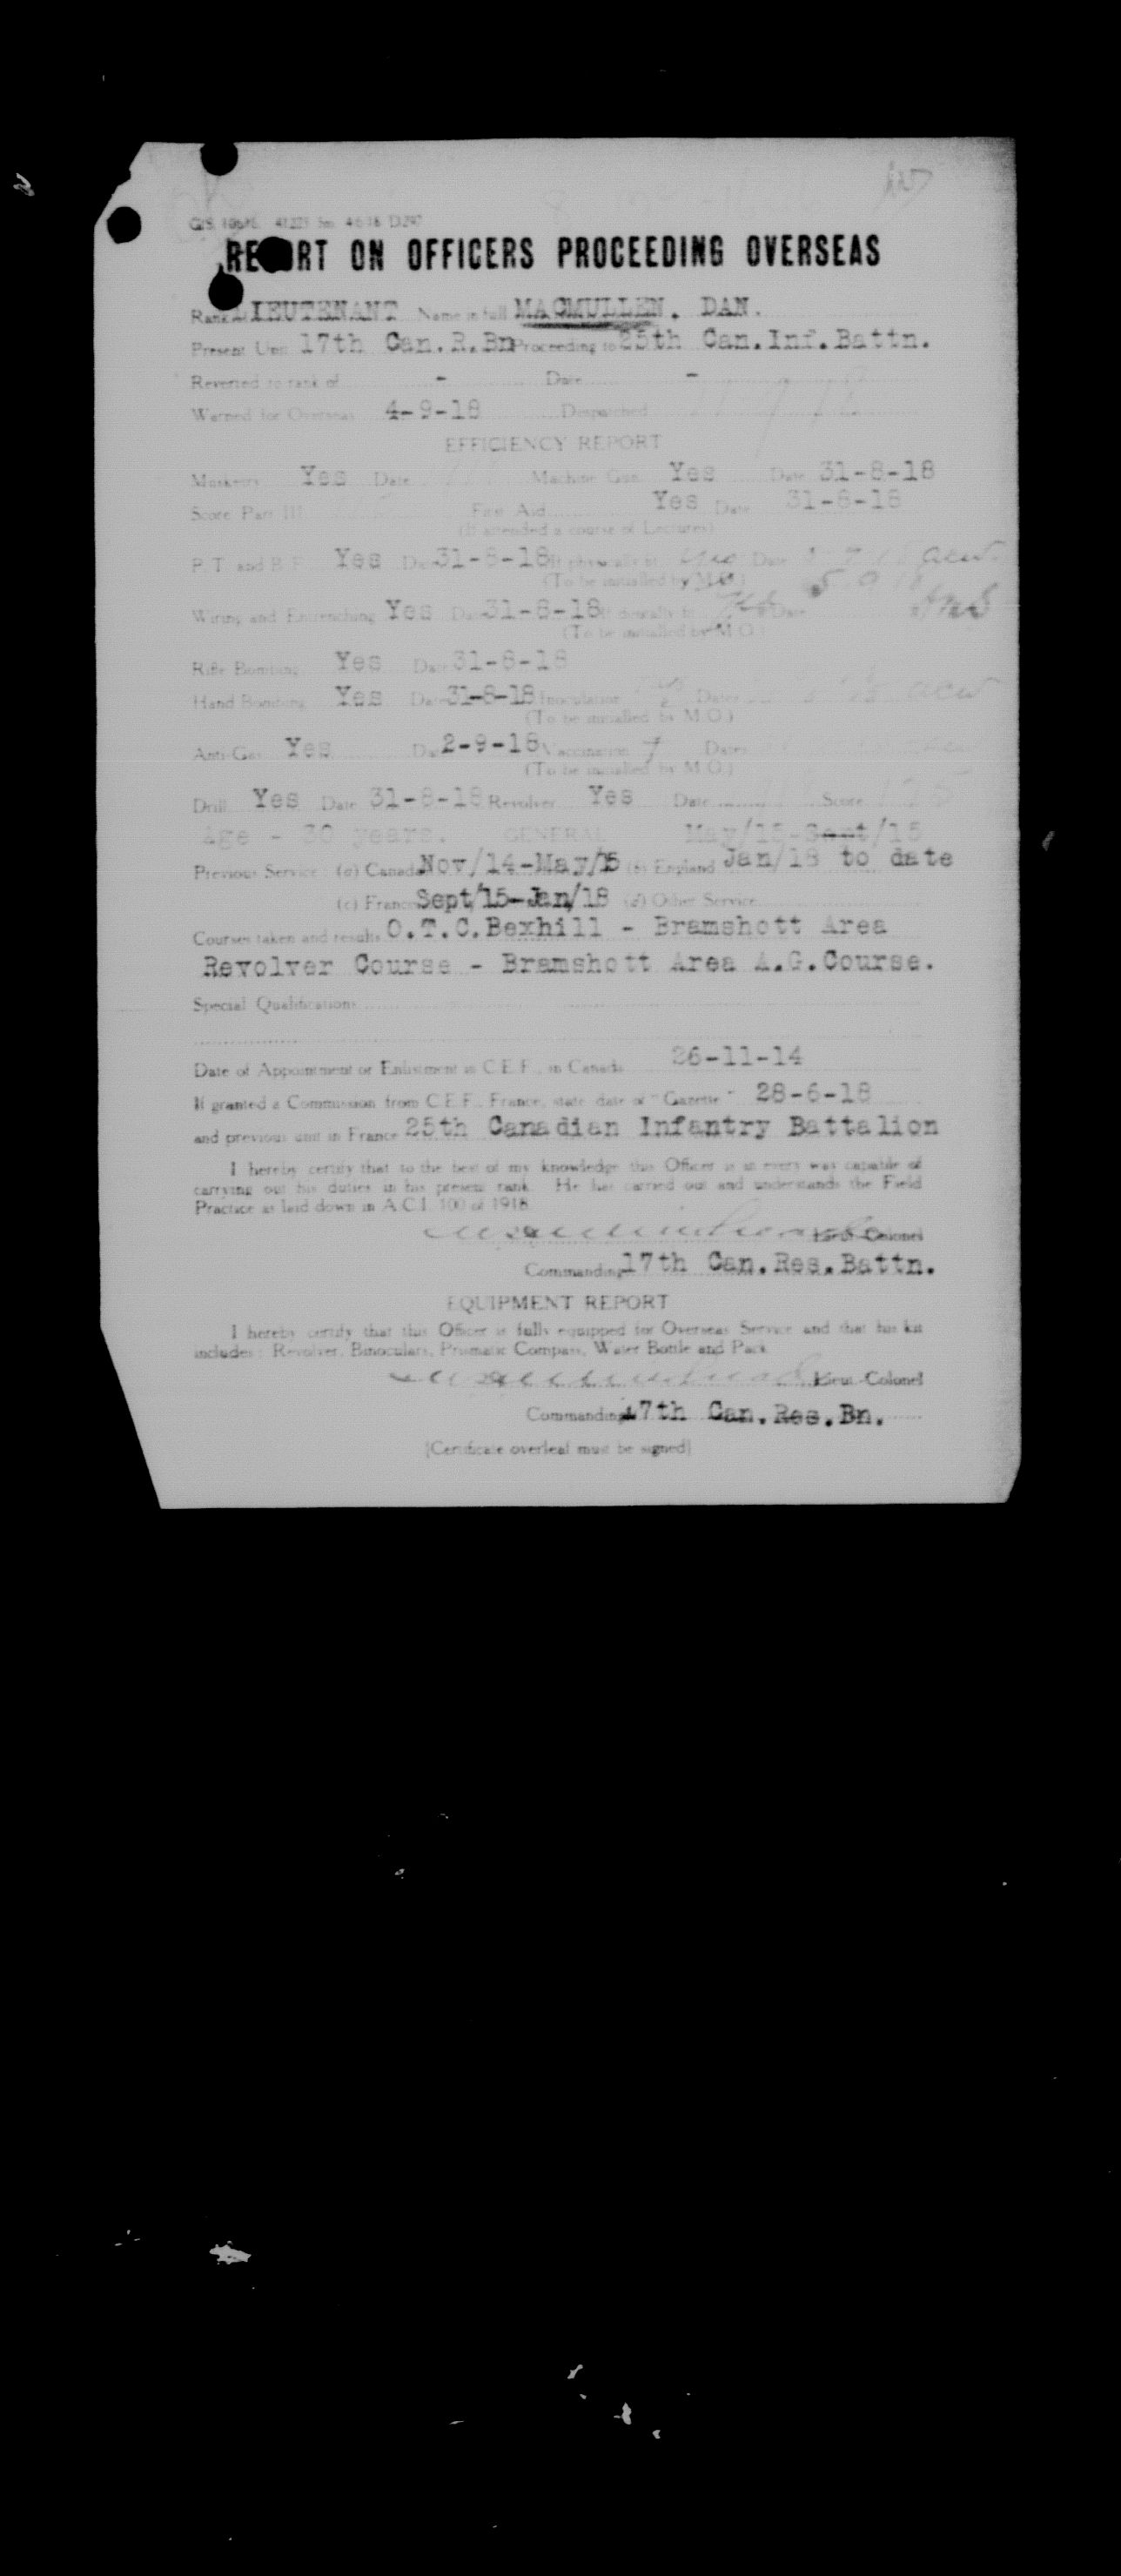 REPORT ON OFFICERS PROCEEDING OVERSEAS
Rank LIEUTENANT Name in full MACMULLEN. DAN.
Present Unit 17th Can.R.Bn Proceeding to 25th Can.Inf.Battn.
Reverted to rank of - Date -
Warned for Overseas 4-9-18 Despatched
EFFICIENCY REPORT
Musketry Yes Date Machine Gun Yes Date 31-8-18
Score Part III First Aid Yes Date 31-8-18
(If attended a course of Lectures)
P.T. and B.F. Yes Date 31-8-18 If physically fit Date
(To be initialled by M.O.)
Wiring and Entrenching Yes Date 31-8-18 If dentally fit Date
(To be initialled by M.O.)
Rifle Bombing Yes Date 31-8-18
Hand Bombing Yes Date 31-8-18 Inoculation Dates
(To be initialled by M.O.)
Anti-Gas Yes Date 2-9-18 Vaccination Dates
(To be initialled by M.O.)
Drill Yes Date 31-8-18 Revolver Yes Date Score
Age - 30 years. GENERAL May/15-Sept/15
Previous Service: (a) Canada Nov/14-May/15 (b) England Jan/18 to date
(c) France Sept/15-Jan/18 (d) Other Service
Courses taken and results O.T.C.Bexhill - Bramshott Area
Revolver Course - Bramshott Area A.G.Course.
Special Qualifications
Date of Appointment or Enlistment in C.E.F., in Canada 26-11-14
If granted a Commission from C.E.F., France, state date of "Gazette" 28-6-18
and previous unit in France 25th Canadian Infantry Battalion
I hereby certify that to the best of my knowledge this Officer is in every way capable of
carrying out his duties in his present rank. He has carried out and understands the Field
Practice as laid down in A.C.I. 100 of 1918.
Lieut-Colonel
Commanding 17th Can.Res.Battn.
EQUIPMENT REPORT
I hereby certify that this Officer is fully equipped for Overseas Service and that his kit
includes: Revolver, Binoculars, Prismatic Compass, Water Bottle and Pack.
Lieut-Colonel
Commanding 17th Can.Res.Bn.
[Certificate overleaf must be signed]